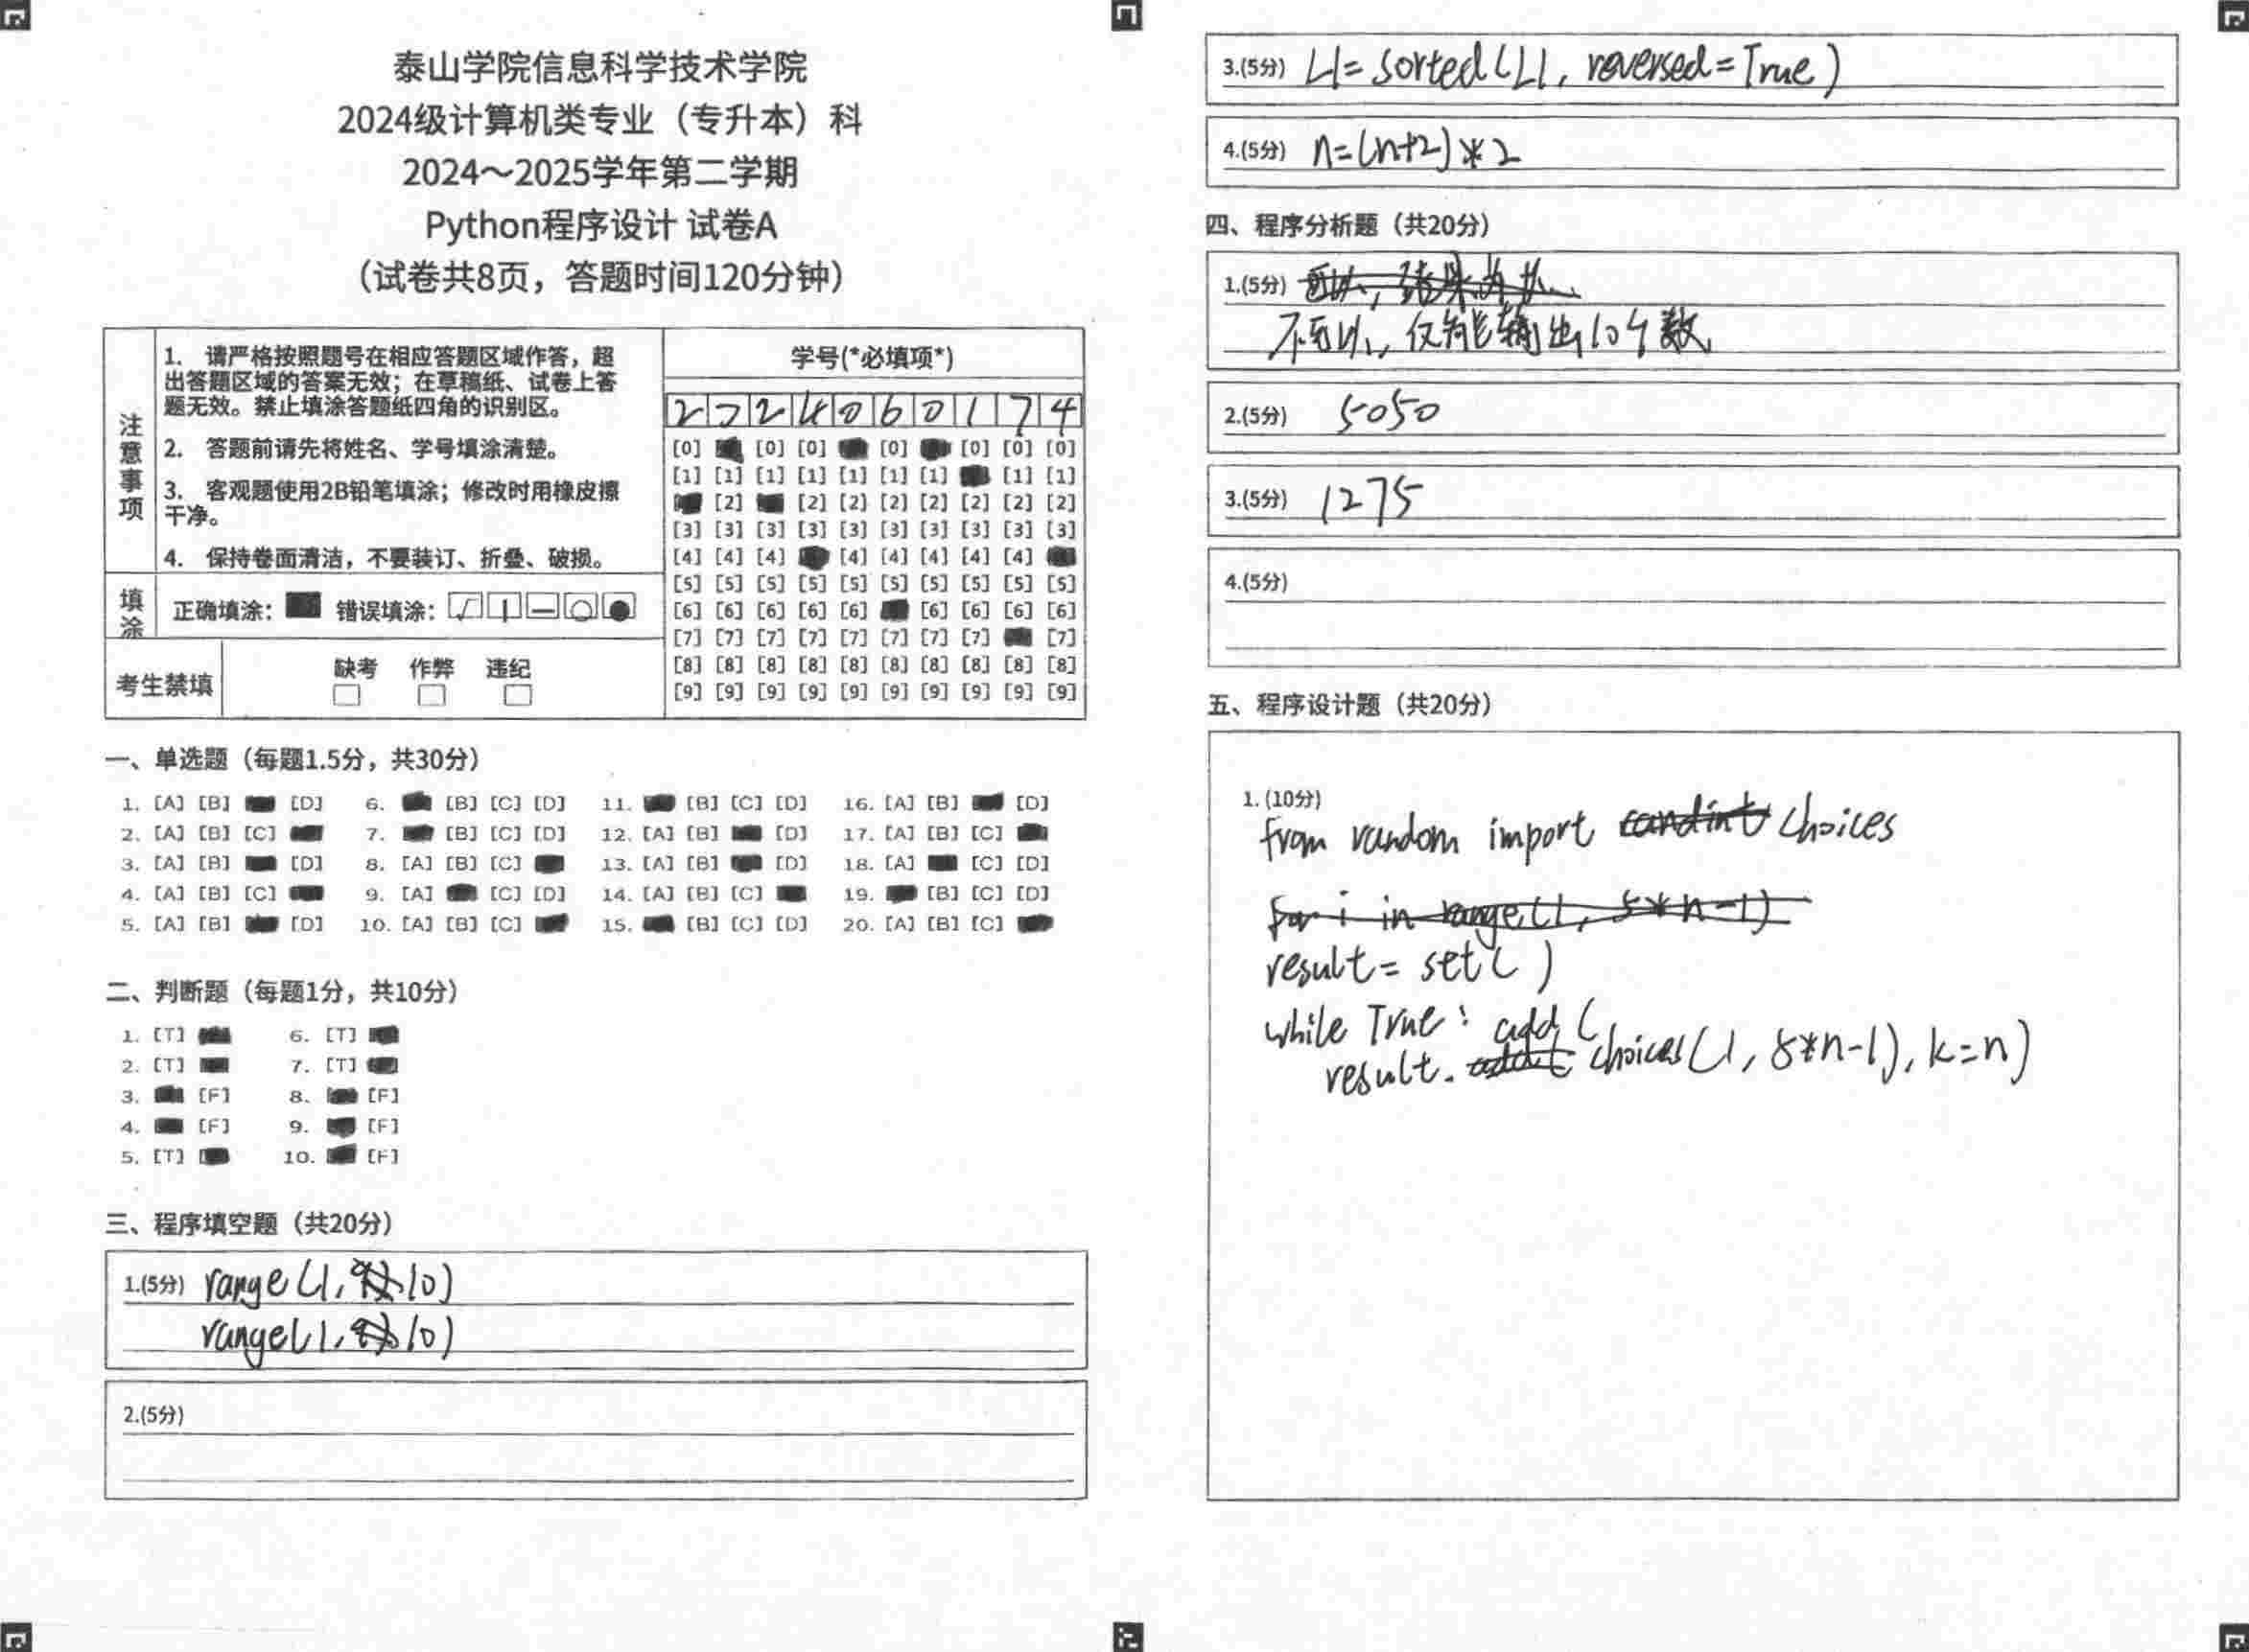 泰山学院信息科学技术学院
2024级计算机类专业（专升本）科
2024～2025学年第二学期
Python程序设计 试卷A
（试卷共8页，答题时间120分钟）
注意事项
1. 请严格按照题号在相应答题区域作答，超
出答题区域的答案无效；在草稿纸、试卷上答
题无效。禁止填涂答题纸四角的识别区。
2. 答题前请先将姓名、学号填涂清楚。
3. 客观题使用2B铅笔填涂；修改时用橡皮擦
干净。
4. 保持卷面清洁，不要装订、折叠、破损。
填涂
正确填涂： 错误填涂：
考生禁填
缺考 作弊 违纪
学号(*必填项*)
2 0 2 4 0 6 0 1 7 4
[0] [0] [0] [0] [0] [0] [0]
[1] [1] [1] [1] [1] [1] [1] [1] [1]
[2] [2] [2] [2] [2] [2] [2] [2]
[3] [3] [3] [3] [3] [3] [3] [3] [3] [3]
[4] [4] [4] [4] [4] [4] [4] [4]
[5] [5] [5] [5] [5] [5] [5] [5] [5] [5]
[6] [6] [6] [6] [6] [6] [6] [6] [6]
[7] [7] [7] [7] [7] [7] [7] [7] [7]
[8] [8] [8] [8] [8] [8] [8] [8] [8] [8]
[9] [9] [9] [9] [9] [9] [9] [9] [9] [9]
一、单选题（每题1.5分，共30分）
1. [A] [B] [D] 6. [B] [C] [D] 11. [B] [C] [D] 16. [A] [B] [D]
2. [A] [B] [C] 7. [B] [C] [D] 12. [A] [B] [D] 17. [A] [B] [C]
3. [A] [B] [D] 8. [A] [B] [C] 13. [A] [B] [D] 18. [A] [C] [D]
4. [A] [B] [C] 9. [A] [C] [D] 14. [A] [B] [C] 19. [B] [C] [D]
5. [A] [B] [D] 10. [A] [B] [C] 15. [B] [C] [D] 20. [A] [B] [C]
二、判断题（每题1分，共10分）
1. [T] 6. [T]
2. [T] 7. [T]
3. [F] 8. [F]
4. [F] 9. [F]
5. [T] 10. [F]
三、程序填空题（共20分）
1.(5分) range(1, 10)
range(1, 10)
2.(5分)
3.(5分) L1= sorted(L1, reversed=True)
4.(5分) n=(n+2)*2
四、程序分析题（共20分）
1.(5分)
不可以，仅能输出10个数
2.(5分) 5050
3.(5分) 1275
4.(5分)
五、程序设计题（共20分）
1. (10分)
from random import randint choices
for i in range(1, 5*n-1)
result= set( )
while True: add(
result. choices(1, 5*n-1), k=n)